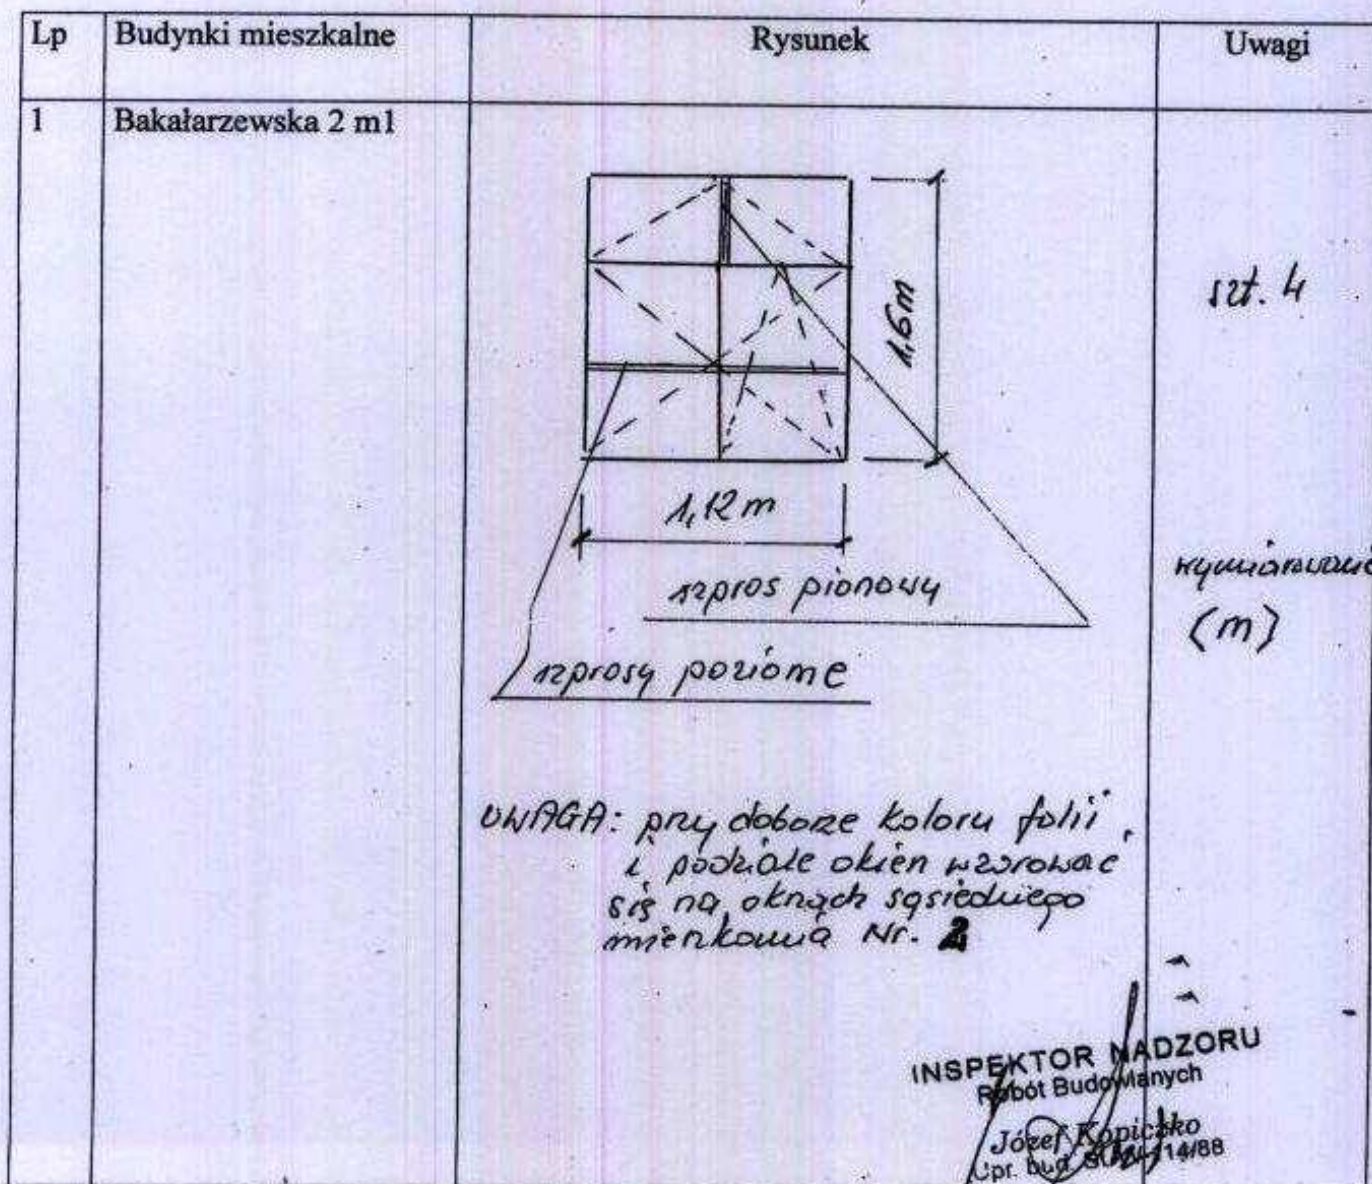 Lp Budynki mieszkalne Rysunek Uwagi
1 Bakałarzewska 2 m1
1,6m
szt. 4
1,12m
wymiarowanie
(m)
szpros pionowy
szprosy poziome
UWAGA: przy doborze koloru folii
i podziale okien wzorować
się na oknach sąsiedniego
mieszkania Nr. 2
INSPEKTOR NADZORU
Robót Budowlanych
Józef Kopiczko
Upr. bud. 114/88